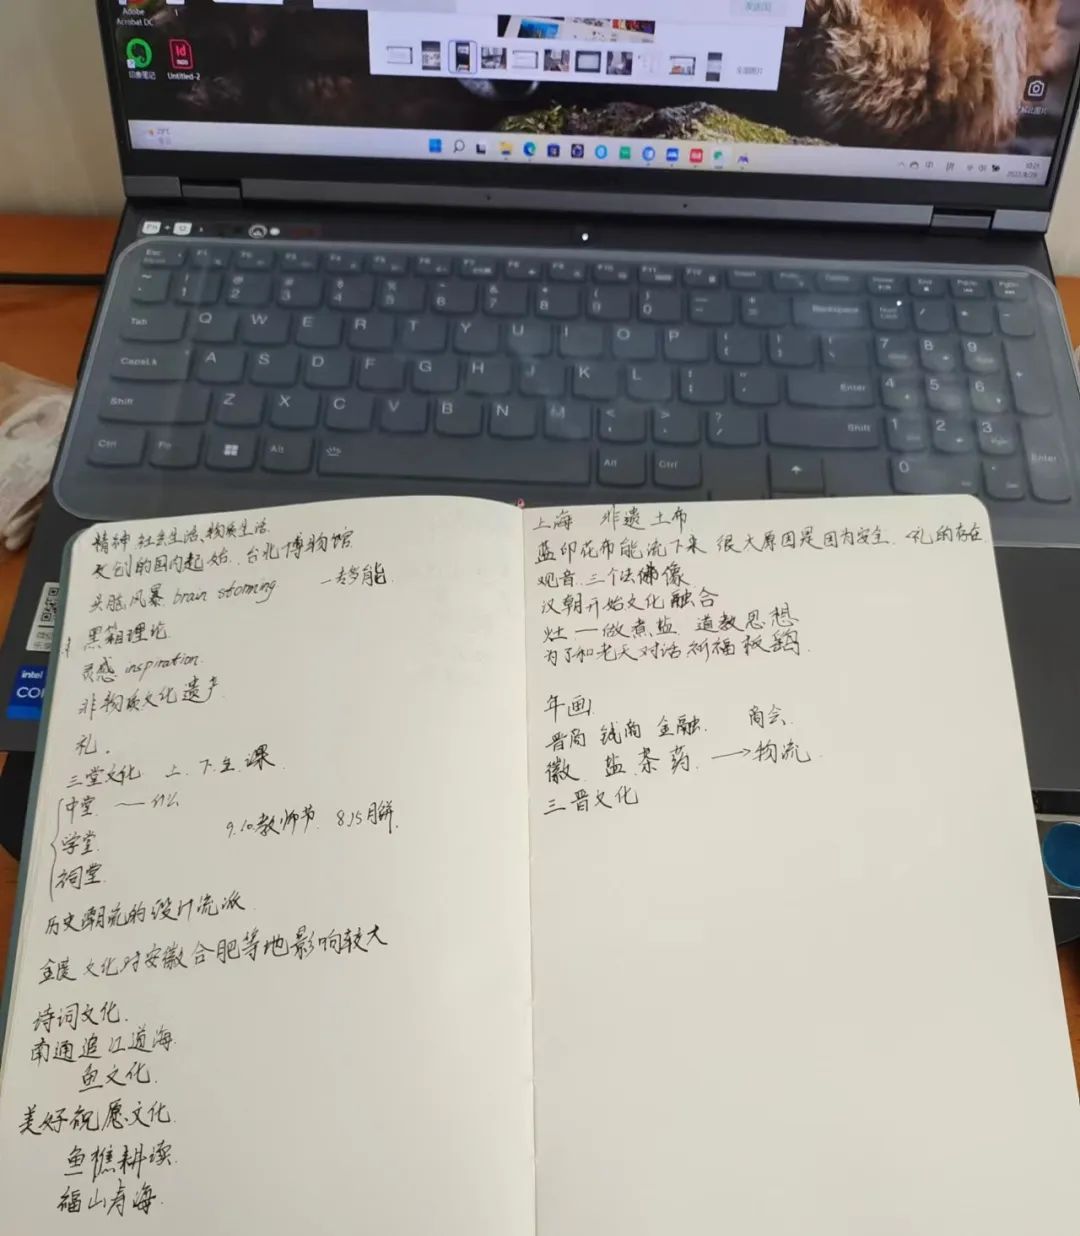 Adobe
Acrobat DC
印象笔记
Untitled-2
29℃
中 拼
10:21
Esc F1 F2 F3 F4 F5 F6 F7 F8 F9 F10 F11 F12 Insert Delete Home End PgUp PgDn
1 2 3 4 5 6 7 8 9 0 Backspace Num Lock / * -
Tab Q W E R T Y U I O P 7 8 9 +
CapsLk A S D F G H J K L Enter 4 5 6
Shift Z X C V B N M < > ? / Shift 1 2 3
Ctrl Fn Alt Alt Ctrl 0 Enter
intel
精神 社会生活 物质生活
文创的国内起始. 台北博物馆
头脑风暴 brain storming 一专多能.
黑箱理论
灵感 inspiration.
非物质文化遗产.
礼.
三堂文化 上、下、全 课
中堂.
学堂.
祠堂.
9.10.教师节 8.15月饼.
历史潮流的设计流派.
文化对安徽合肥等地影响较大
诗词文化.
南通追江道海.
鱼文化.
美好祝愿文化.
鱼樵耕读.
福山寿海.
上海 非遗土布
蓝印花布能流下来 很大原因是因为安全. 礼的存在.
观音. 三个法佛像
汉朝开始文化融合
灶 — 做煮盐. 道教思想
为了和老天对话 祈福 板鹞
年画.
晋商 钱商 金融. 商会.
徽. 盐. 茶 药. → 物流.
三晋文化